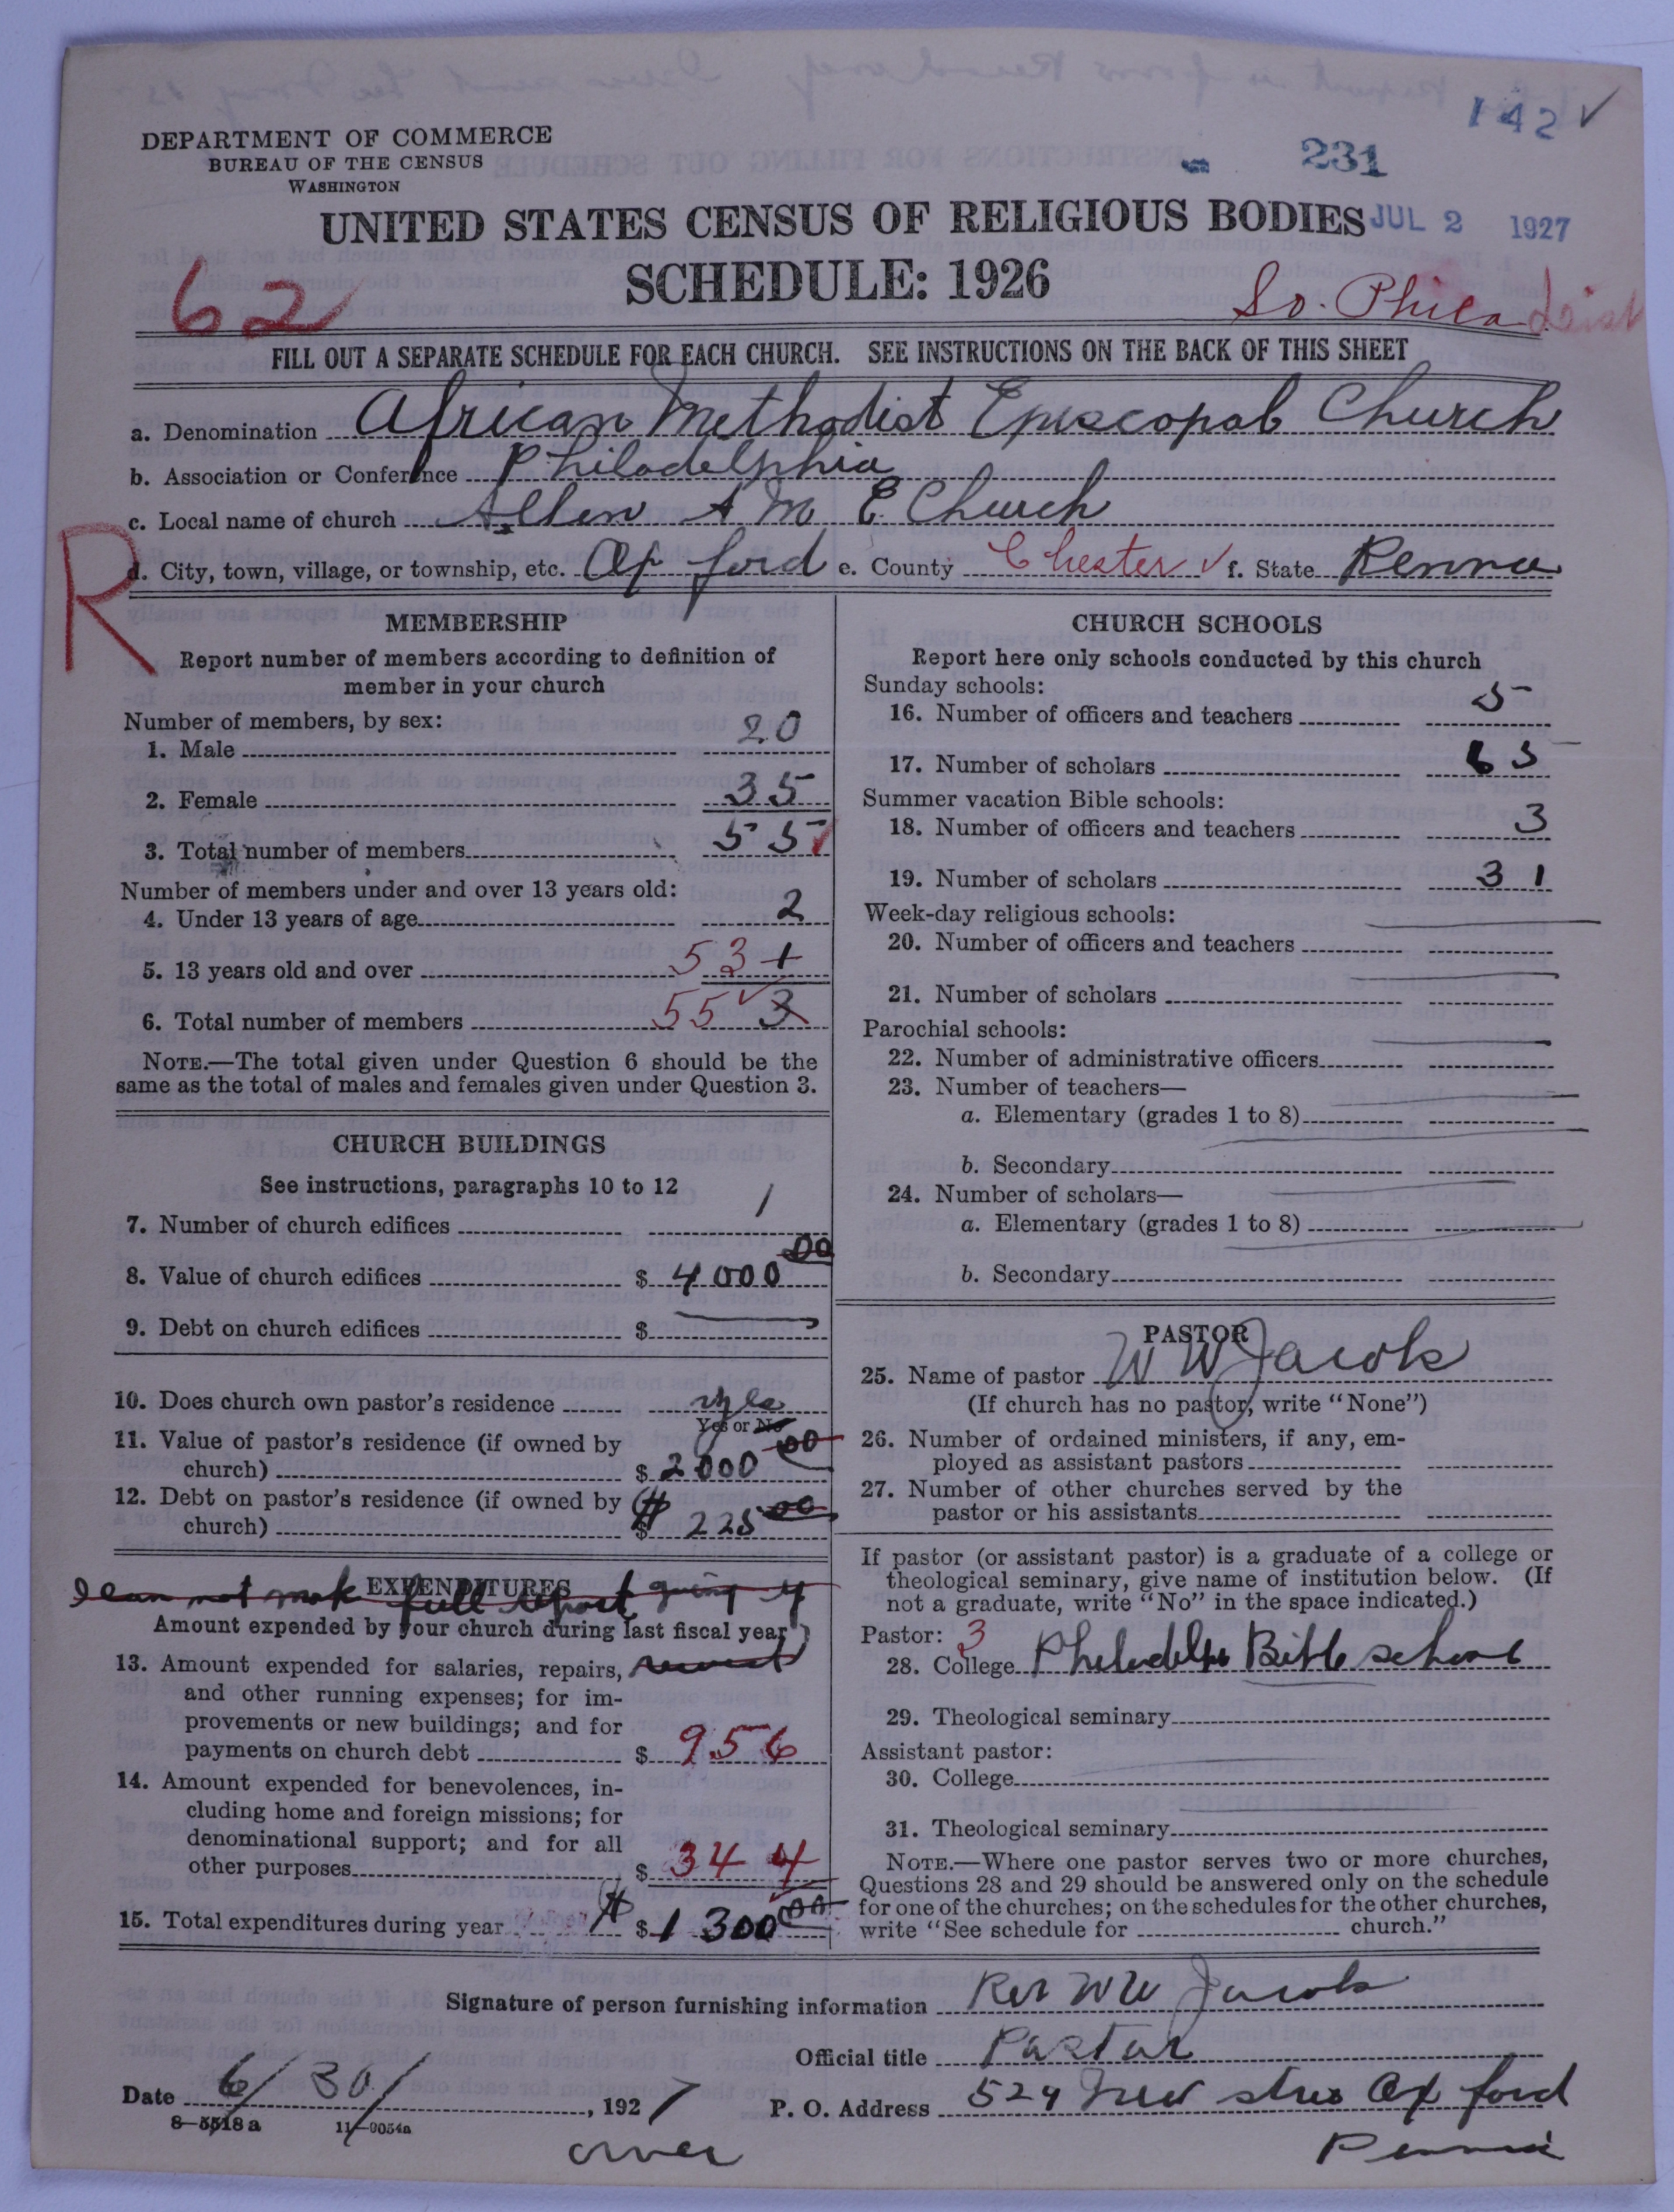 142 ✓
231
DEPARTMENT OF COMMERCE
BUREAU OF THE CENSUS
WASHINGTON
UNITED STATES CENSUS OF RELIGIOUS BODIES
JUL 2 1927
SCHEDULE: 1926
62
So. Phila Dist
FILL OUT A SEPARATE SCHEDULE FOR EACH CHURCH. SEE INSTRUCTIONS ON THE BACK OF THIS SHEET
a. Denomination African Methodist Episcopal Church
b. Association or Conference Philadelphia
c. Local name of church Allen A M E Church
R
d. City, town, village, or township, etc. Oxford e. County Chester ✓ f. State Penna
MEMBERSHIP
Report number of members according to definition of
member in your church
Number of members, by sex:
1. Male 20
2. Female 35
3. Total number of members 55
Number of members under and over 13 years old:
4. Under 13 years of age 2
5. 13 years old and over 53 1
6. Total number of members 55 ✓ 3
NOTE.—The total given under Question 6 should be the
same as the total of males and females given under Question 3.
CHURCH BUILDINGS
See instructions, paragraphs 10 to 12
7. Number of church edifices 1
8. Value of church edifices $ 4000 00
9. Debt on church edifices $
10. Does church own pastor's residence yes
Yes or No
11. Value of pastor's residence (if owned by
church) $ 2000 00
12. Debt on pastor's residence (if owned by
church) $ 225 00
EXPENDITURES
I can not make full report
Amount expended by your church during last fiscal year
13. Amount expended for salaries, repairs,
and other running expenses; for im-
provements or new buildings; and for
payments on church debt $ 956
14. Amount expended for benevolences, in-
cluding home and foreign missions; for
denominational support; and for all
other purposes $ 344
15. Total expenditures during year $ 1300 00
CHURCH SCHOOLS
Report here only schools conducted by this church
Sunday schools:
16. Number of officers and teachers 5
17. Number of scholars 65
Summer vacation Bible schools:
18. Number of officers and teachers 3
19. Number of scholars 31
Week-day religious schools:
20. Number of officers and teachers
21. Number of scholars
Parochial schools:
22. Number of administrative officers
23. Number of teachers—
a. Elementary (grades 1 to 8)
b. Secondary
24. Number of scholars—
a. Elementary (grades 1 to 8)
b. Secondary
PASTOR
25. Name of pastor W W Jacobs
(If church has no pastor, write "None")
26. Number of ordained ministers, if any, em-
ployed as assistant pastors
27. Number of other churches served by the
pastor or his assistants
If pastor (or assistant pastor) is a graduate of a college or
theological seminary, give name of institution below. (If
not a graduate, write "No" in the space indicated.)
Pastor: 3
28. College Bible school
29. Theological seminary
Assistant pastor:
30. College
31. Theological seminary
NOTE.—Where one pastor serves two or more churches,
Questions 28 and 29 should be answered only on the schedule
for one of the churches; on the schedules for the other churches,
write "See schedule for church."
Signature of person furnishing information Rev W W Jacobs
Official title Pastor
Date 6/30/, 1927
P. O. Address 529 Oxford
Penna
8-5518a 11-9054a
over